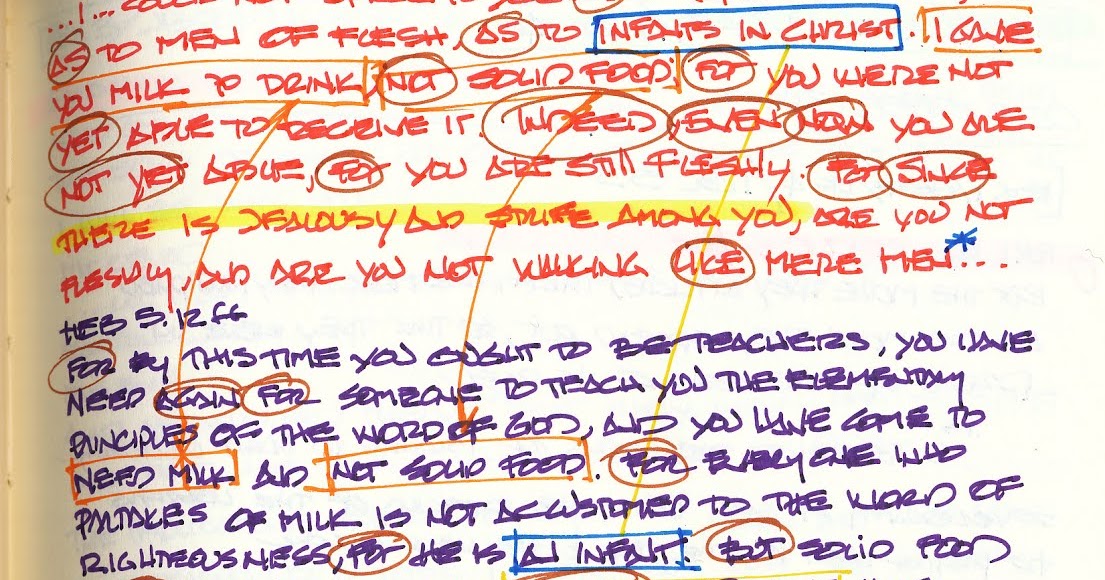 AS TO MEN OF FLESH, AS TO INFANTS IN CHRIST. I GAVE
YOU MILK TO DRINK, NOT SOLID FOOD; FOR YOU WERE NOT
YET ABLE TO RECEIVE IT. INDEED, EVEN NOW YOU ARE
NOT YET ABLE, FOR YOU ARE STILL FLESHLY. FOR SINCE
THERE IS JEALOUSY AND STRIFE AMONG YOU, ARE YOU NOT
FLESHLY, AND ARE YOU NOT WALKING LIKE MERE MEN...*
HEB 5.12.ff
FOR BY THIS TIME YOU OUGHT TO BE TEACHERS, YOU HAVE
NEED AGAIN FOR SOMEONE TO TEACH YOU THE ELEMENTARY
PRINCIPLES OF THE WORD OF GOD, AND YOU HAVE COME TO
NEED MILK AND NOT SOLID FOOD. FOR EVERYONE WHO
PARTAKES OF MILK IS NOT ACCUSTOMED TO THE WORD OF
RIGHTEOUSNESS, FOR HE IS AN INFANT. BUT SOLID FOOD